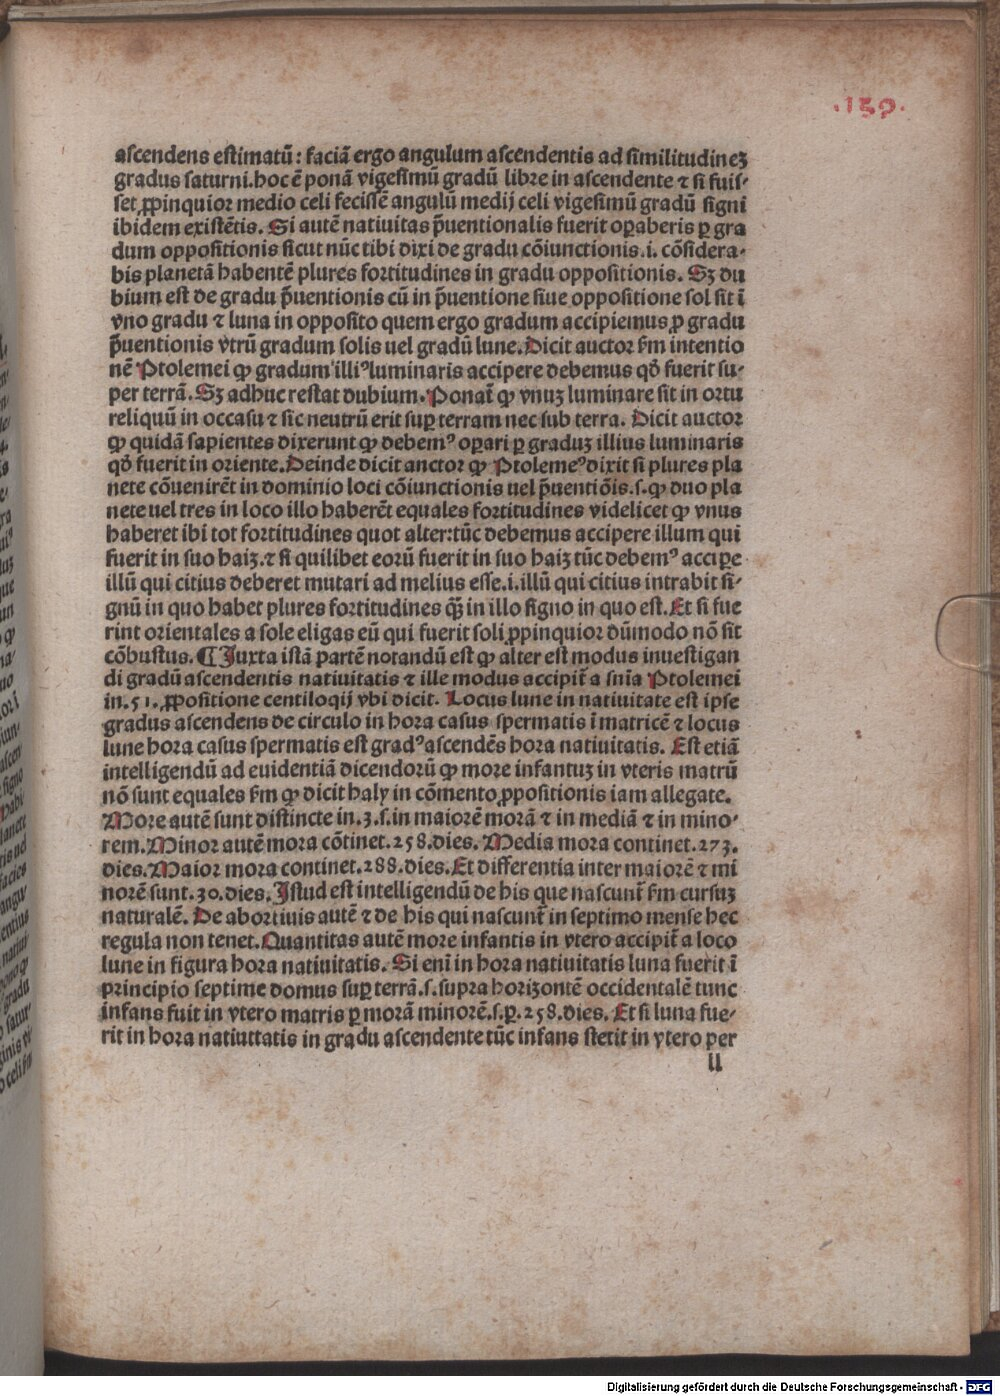 .159.
aſcendens eſtimatū: faciā ergo angulum aſcendentis ad ſimilitudineꝫ
gradus ſaturni.hoc ē ponā vigeſimū gradū libre in aſcendente ⁊ ſi fuiſ⸗
ſet ꝓpinquior medio celi feciſſē angulū medij celi vigeſimū gradū ſigni
ibidem exiſtētis. Si autē natiuitas p̄uentionalis fuerit oꝑaberis ꝑ gra
dum oppoſitionis ſicut nūc tibi dixi de gradu cōiunctionis.i. cōſidera⸗
bis planetā habentē plures fortitudines in gradu oppoſitionis. Sꝫ du
bium eſt de gradu p̄uentionis cū in p̄uentione ſiue oppoſitione ſol ſit ī
vno gradu ⁊ luna in oppoſito quem ergo gradum accipiemus ꝓ gradu
p̄uentionis vtrū gradum ſolis uel gradū lune. Dicit auctor ẜm intentio
nē Ptolemei ꝙ gradum illiꝰ luminaris accipere debemus qđ fuerit ſu⸗
per terrā. Sꝫ adhuc reſtat dubium. Ponat̄ ꝙ vnuꝫ luminare ſit in ortu
reliquū in occaſu ⁊ ſic neutrū erit ſuꝑ terram nec ſub terra. Dicit auctor
ꝙ quidā ſapientes dixerunt ꝙ debemꝰ oꝑari ꝑ graduꝫ illius luminaris
qđ fuerit in oriente. Deinde dicit anctor ꝙ Ptolemeꝰ dixit ſi plures pla
nete cōuenirēt in dominio loci cōiunctionis uel p̄uentiōis.ſ.ꝙ duo pla
nete uel tres in loco illo haberēt equales fortitudines videlicet ꝙ vnus
haberet ibi tot fortitudines quot alter:tūc debemus accipere illum qui
fuerit in ſuo haiz.⁊ ſi quilibet eorū fuerit in ſuo haiz tūc debemꝰ acciꝑe
illū qui citius deberet mutari ad melius eſſe.i.illū qui citius intrabit ſi⸗
gnū in quo habet plures fortitudines qꝫ̄ in illo ſigno in quo eſt. Et ſi fue
rint orientales a ſole eligas eū qui fuerit ſoli ꝓpinquior dūmodo nō ſit
cōbuſtus. ¶ Juxta iſtā partē notandū eſt ꝙ alter eſt modus inueſtigan
di gradū aſcendentis natiuitatis ⁊ ille modus accipit̄ a ſnia Ptolemei
in.51. ꝓpoſitione centiloqij vbi dicit. Locus lune in natiuitate eſt ipſe
gradus aſcendens de circulo in hora caſus ſpermatis ī matricē ⁊ locus
lune hora caſus ſpermatis eſt gradꝰ aſcendēs hora natiuitatis. Eſt etiā
intelligendū ad euidentiā dicendorū ꝙ more infantuꝫ in vteris matrū
nō ſunt equales ẜm ꝙ dicit haly in cōmento ꝓpoſitionis iam allegate.
More autē ſunt diſtincte in.3.ſ.in maiorē morā ⁊ in mediā ⁊ in mino⸗
rem. Minor autē mora cōtinet.258.dies. Media mora continet.273.
dies. Maior mora continet.288.dies. Et differentia inter maiorē ⁊ mi
norē ſunt.30.dies. Iſtud eſt intelligendū de his que naſcunt̄ ẜm curſuꝫ
naturalē. De abortiuis autē ⁊ de his qui naſcunt̄ in ſeptimo menſe hec
regula non tenet. Quantitas autē more infantis in vtero accipit̄ a loco
lune in figura hora natiuitatis. Si enī in hora natiuitatis luna fuerit ī
principio ſeptime domus ſuꝑ terrā.ſ.ſupra horizontē occidentalē tunc
infans fuit in vtero matris ꝑ morā minorē.ſ.ꝑ.258.dies. Et ſi luna fue⸗
rit in hora natiuttatis in gradu aſcendente tūc infans ſtetit in vtero per
ll
Digitalisierung gefördert durch die Deutsche Forschungsgemeinschaft - DFG